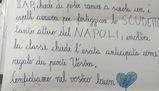 IIAP, chiede di poter venire a scuola con i
capelli azzurri per festeggiare lo SCUDETTO
tanto atteso del NAPOLI, inoltre,
la classe chiede l'uscita anticipata come
regalo da parte Vostra.
Confidiamo nel vostro buon